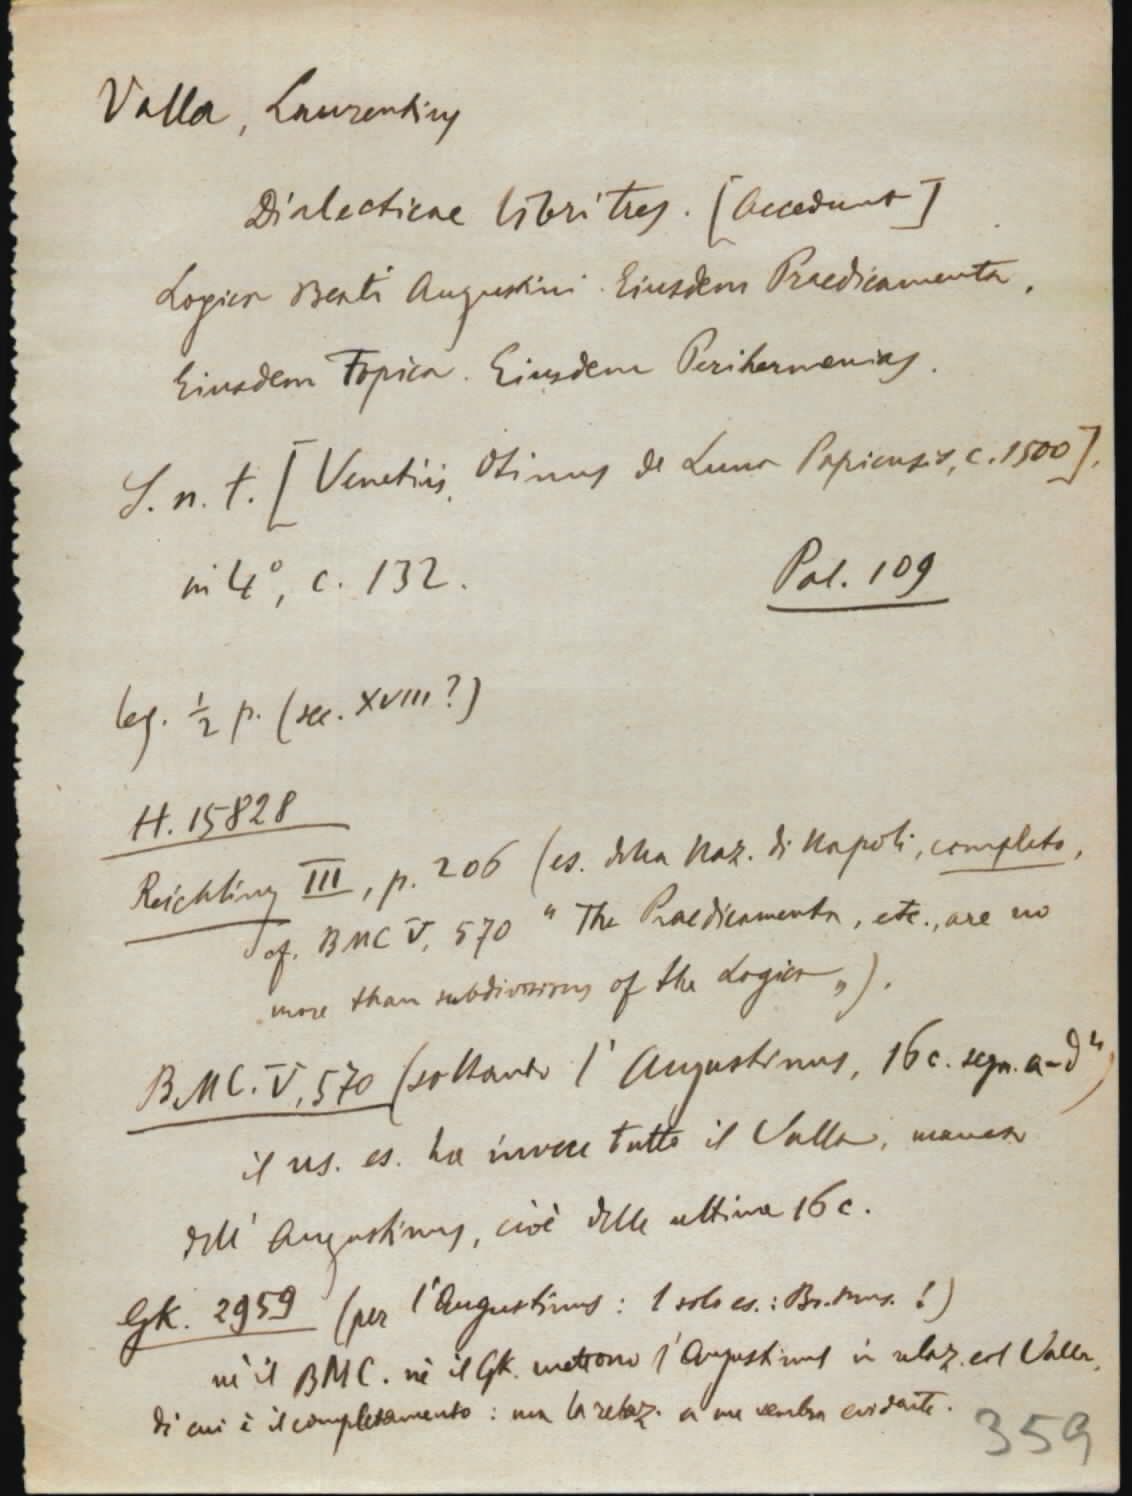 Valla, Laurentius
Dialecticae libri tres. [Accedunt]
Logica Beati Augustini. Eiusdem Praedicamenta.
Eiusdem Topica. Eiusdem Perihermenias.
S. n. t. [Venetiis, Otinus de Luna Papiensis, c. 1500].
in 4°, c. 132.
Pal. 109
leg. ½ p. (sec. XVIII?)
H. 15828
Reichling III, p. 206 (es. della Naz. di Napoli, completo,
cf. BMC V, 570 "The Praedicamenta, etc., are no
more than subdivisions of the Logica„).
BMC. V, 570 (soltanto l'Augustinus, 16 c. segn. a-d⁴)
il ns. es. ha invece tutto il Valla, manca
dell'Augustinus, cioè delle ultime 16 c.
Gk. 2959 (per l'Augustinus: 1 solo es.: Br. Mus. !)
nè il BMC. nè il Gk. mettono l'Augustinus in relaz. col Valla,
di cui è il completamento: ma la relaz. a me sembra evidente.
359